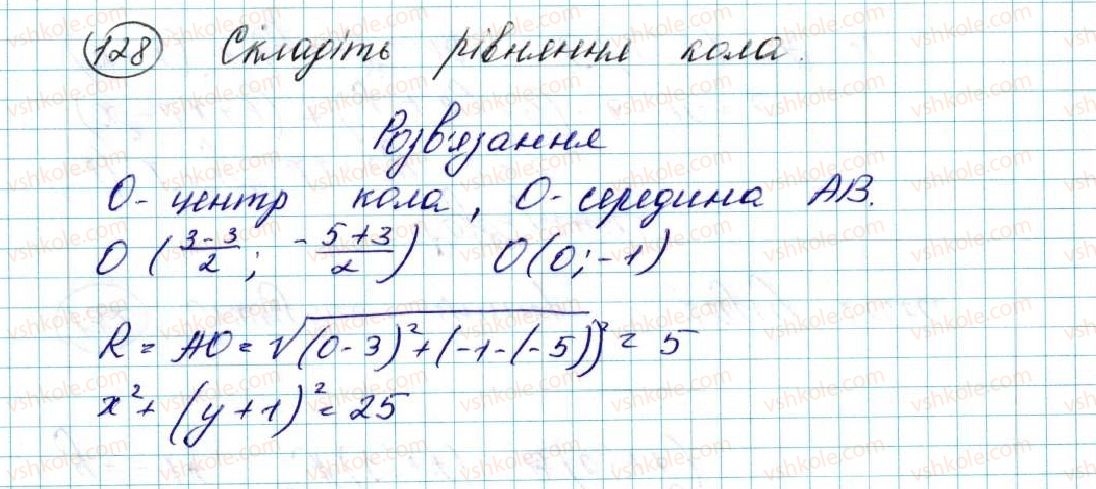 128 Складіть рівняння кола.
Розв'язання
О - центр кола, О - середина АВ.
O (3-3/2; -5+3/2) O(0;-1)
R = AO = √(0-3)²+(-1-(-5))² = 5
x²+(y+1)²=25